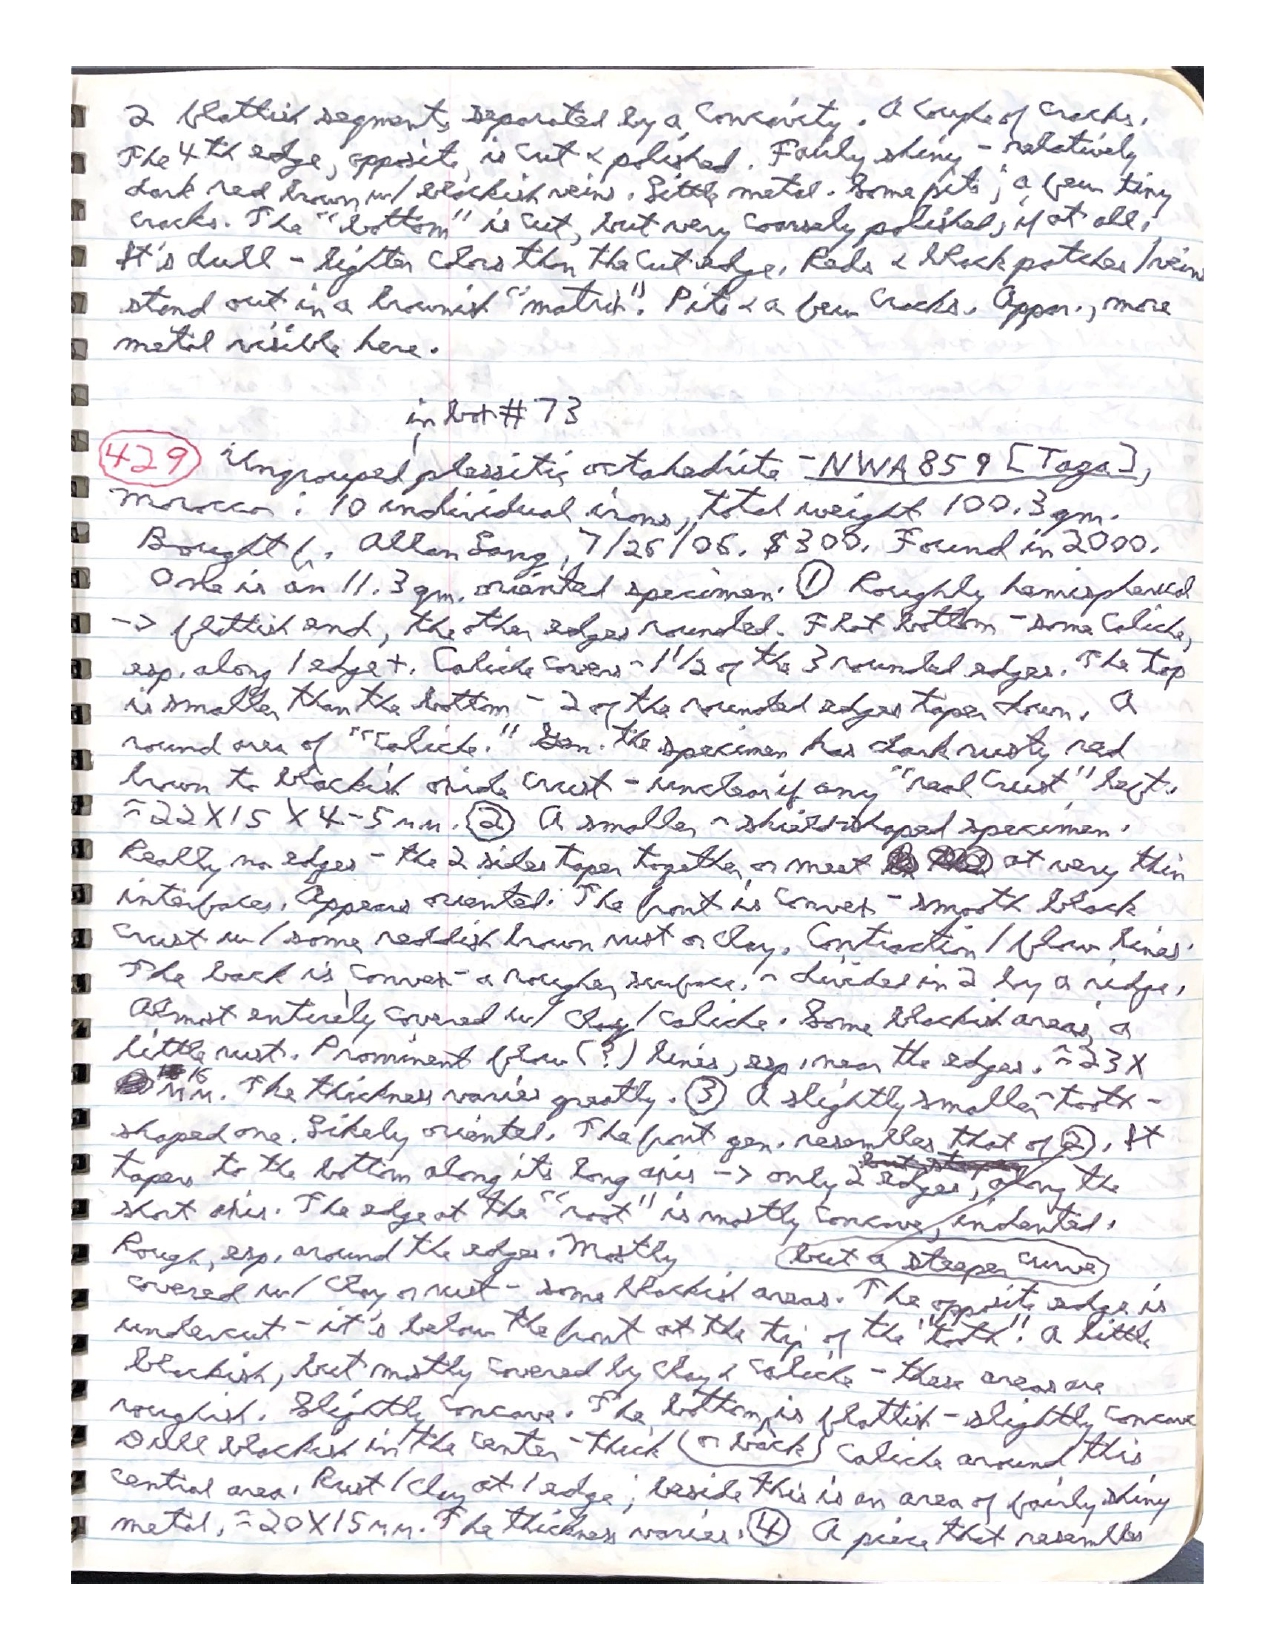 2 flattish segments, separated by a concavity. A couple of cracks.
The 4th edge, opposite, is cut & polished. Fairly shiny - relatively
dark red brown w/ blackish veins. Little metal. Some pits; a few tiny
cracks. The "bottom" is cut, but very coarsely polished, if at all.
It's dull - lighter colors than the cut edge. Reds & black patches/veins
stand out in a brownish "matrix". Pits & a few cracks. Appar., more
metal visible here.
in box #73
429 Ungrouped plessitic octahedrite - NWA 859 [Taza],
Morocco: 10 individual irons, total weight 100.3 gm.
Bought f. Allan Lang, 7/26/06. $300. Found in 2000.
One is an 11.3 gm. oriented specimen. ① Roughly hemispherical
-> flattish end, the other edges rounded. Flat bottom - some caliche,
esp. along 1 edge+. Caliche covers ~ 1 1/2 of the 3 rounded edges. The top
is smaller than the bottom - 2 of the rounded edges taper down. A
round area of "caliche." Gen. the specimen has dark rusty red
brown to blackish oxide crust - unclear if any "real crust" left.
≈22X15X4-5mm. ② A smaller ~ shield-shaped specimen.
Really no edges - the 2 sides taper together or meet at very thin
interfaces. Appears oriented. The front is convex - smooth black
crust w/ some reddish brown rust or clay. Contraction/flow lines.
The back is convex - a rougher surface, ~ divided in 2 by a ridge.
Almost entirely covered w/ clay/caliche. Some blackish areas, a
little rust. Prominent flow (?) lines, esp. near the edges. ≈23X
15 mm. The thickness varies greatly. ③ A slightly smaller tooth-
shaped one. Likely oriented. The front gen. resembles that of ②. It
tapers to the bottom along its long axis -> only 2 edges, along the
short axis. The edge at the "root" is mostly concave, indented.
Rough, esp. around the edges. Mostly but a steeper curve
covered w/ clay or rust - some blackish areas. The opposite edge is
undercut - it's below the front at the tip of the "tooth". A little
blackish, but mostly covered by clay & caliche - these areas are
roughish. Slightly concave. The bottom is flattish - slightly concave
Dull blackish in the center - thick (or back) caliche around this
central area. Rust/clay at 1 edge; beside this is an area of fairly shiny
metal. ≈20X15mm. The thickness varies. ④ A piece that resembles